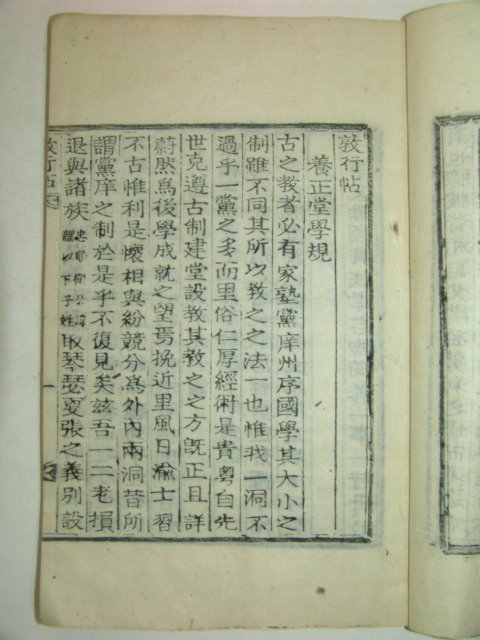 敦行帖
養正堂學規
古之教者必有家塾黨庠州序國學其大小之
制雖不同其所以教之之法一也惟我一洞不
過乎一黨之多而里俗仁厚經術是貴粤自先
世克遵古制建堂設教其教之之方旣正且詳
蔚然爲後學成就之望焉挽近里風日渝士習
不古惟利是懷相與紛競分爲外內兩洞昔所
謂黨庠之制於是乎不復見矣玆吾一二老損
退與諸族 以下子姓 取琴瑟更張之義別設
敦行帖 一